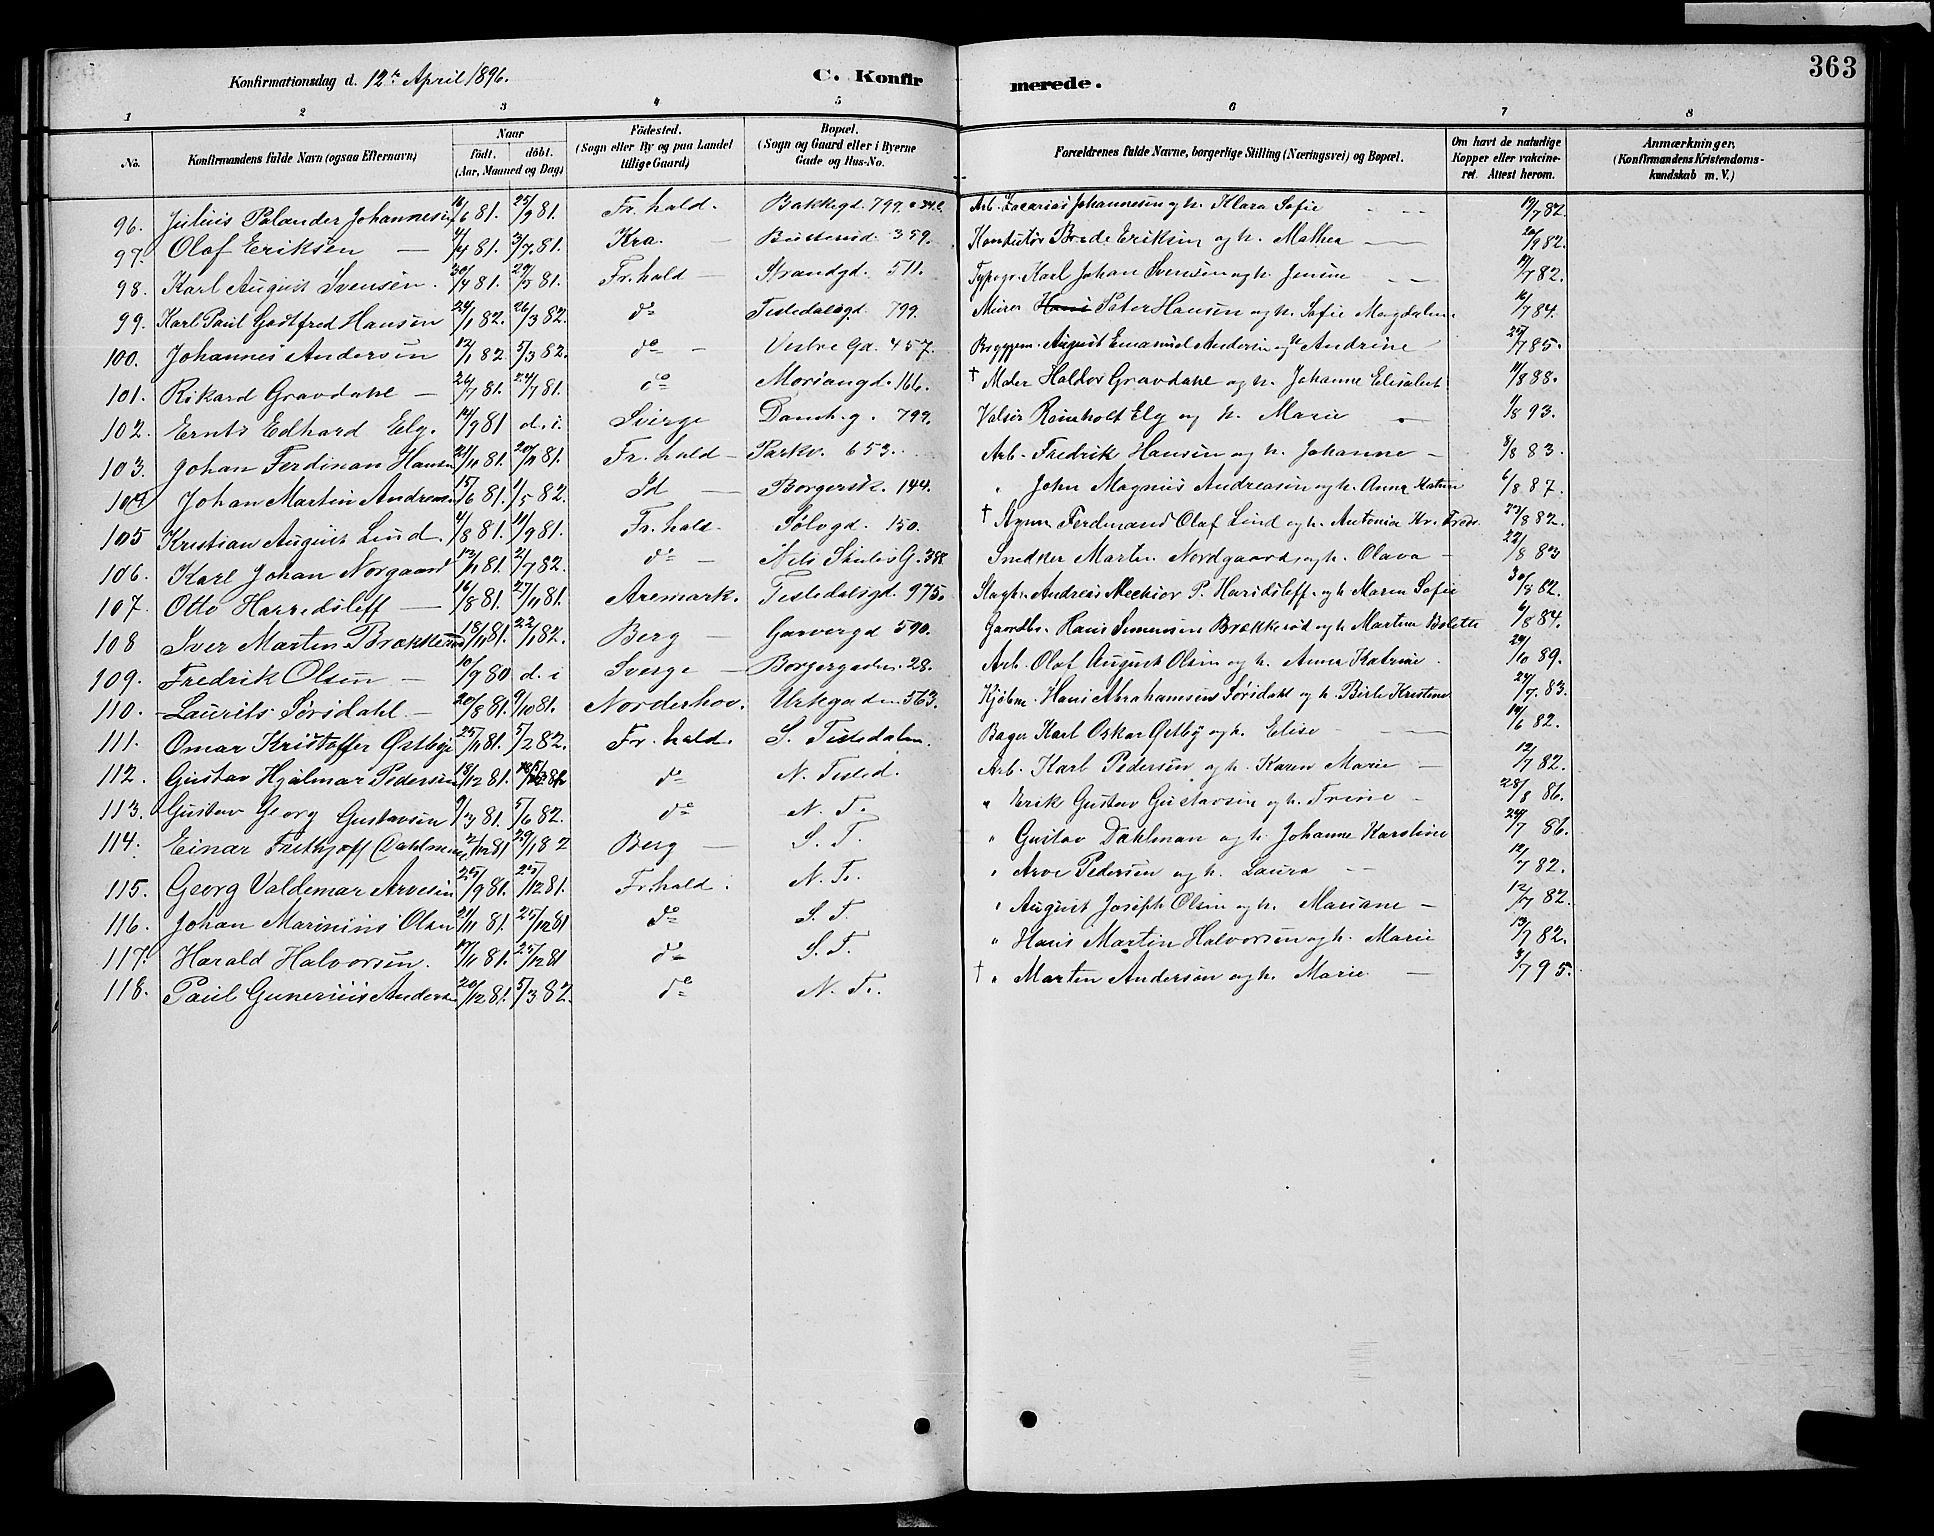 363
Konfirmationsdag d. 12te April 1896.
C. Konfirmerede.
1 2 3 4 5 6 7 8
No. Konfirmandens fulde Navn (ogsaa Efternavn) Naar født. døbt. (Aar, Maaned og Dag) Fødested. (Sogn eller By og paa Landet tillige Gaard) Bopæl. (Sogn og Gaard eller i Byerne Gade og Hus-No. Forældrenes fulde Navne, borgerlige Stilling (Næringsvei) og Bopæl. Om havt de naturlige Kopper eller vakcineret. Attest herom. Anmærkninger. (Konfirmandens Kristendomskundskab m. V.)
96. Julius Palander Johannesen 16/6 81. 25/9 81. Fr.hald. Bakkegd. 799. Arb. Zacarias Johannesen og h. Klara Sofie 19/7 82.
97. Olaf Eriksen — 4/4 81. 3/7 81. Kra. — 359. Konduktør Brede Eriksen og h. Mathea — 20/9 82.
98. Karl August Svensen. 20/4 81. 29/5 81. Fr.hald — Strandgd. 511. Typogr. Karl Johan Svensen og h. Jensine 12/7 82.
99. Karl Paul Gottfred Hansen 24/1 82. 26/3 82. do Tistedalsgd. 799. Murer Hans Peter Hansen og h. Sofie Magdalene. 16/7 84.
100. Johannes Andersen 12/1 82. 5/3 82. do — Vestre Ga. 457. August Emanuel Andersen og h. Andrine 25/7 85.
101. Rikard Gravdahl — 26/7 81. 24/7 81. do Moriangd. 166. † Maler Haldor Gravdahl og h. Johanne Elisabet 11/8 88.
102. Ernts Edhard Elg. 14/9 81 d. i. Sverge Damh.g. 799. Valser Reinholt Elg og h. Marie 1/8 93.
103. Johan Ferdinan Hansen 21/10 81. 20/11 81. Fr.hald — Parkv. 653. Arb. Fredrik Hansen og h. Johanne — 8/8 83.
104 Johan Martin Andreasen 15/6 81. 1/5 82. Id — Borgersk. 144. " John Magnus Andreasen og h. Anna Katrine 6/8 87.
105 Kristian August Lund. 4/8 81. 11/9 81. Fr.hald. Sølvgd. 150. † Ferdinand Olaf Lind og h. Antonia Kr. Fred. 23/8 82.
106. Karl Johan Norgaard 12/11 81. 2/7 82. do — Nils Skules G. 388 Snedker Martin Nordgaard og h. Olava — 22/8 83
107. Otto Harridsleff — 16/8 81. 27/11 81. Aremark. Tistedalsgd. 975. Slagtr. Andreas Mechior P. Haridsleff. og h Maren Sofie 30/8 82.
108 Iver Martin Brækkerød 18/11 81. 22/1 82. Berg — Garvergd 590. Gaardbr. Hans Simensen Brækkerød og h. Martine Bolette 6/8 84.
109. Fredrik Olsen — 10/9 80 d. i Sverge — Borgergaden. 28. Arb. Olaf August Olsen og h. Anna Katrine. 24/10 89.
110. Laurits Sørsdahl. — 20/8 81. 9/10 81. Norderhov. Urkegaden 563. Kjøbm. Hans Abrahamsen Sørsdahl og h. Birte Kristine 24/7. 83.
111. Omar Kristoffer Østbye 25/11 81. 5/2 82. Fr.hald. S. Tistedalen. Bager Karl Oskar Østby og h. Elise — 19/6 82.
112. Gustav Hjalmar Pedersen 13/12 81. do N. Tisted. Arb. Karl Pedersen og h. Karen Marie — 12/7 82.
113. Gustav Georg Gustavsen 9/3 81. 5/6 82. do N. T. " Erik Gustav Gustavsen og h. Trine — 28/8 86.
114. Einar Frithjoff Dahlman 2/12 81 29/1 82 Berg — S. T. " Gustav Dahlman og h. Johanne Karstine 24/7 86.
115. Georg Valdemar Arvesen 25/9 81. 25/12 81. Fr.hald. N. T. " Arve Pedersen og h. Laura — 12/7 82.
116. Johan Marinius Olsen 21/11 81. 25/12 81 do S. T. " August Joseph Olsen og h. Mariane — 12/7 82.
117. Harald Halvorsen. 17/11 81. 25/12 81 do S. T. " Hans Martin Halvorsen og h. Marie 13/7 82.
118. Paul Gunerius Andersen 20/12 81. 5/3 82. do N. T. † " Marten Andersen og h. Marie — 3/7 95.